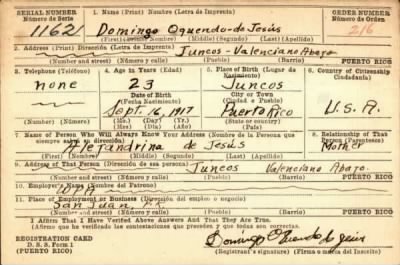 SERIAL NUMBER 1. Name (Print) Nombre (Letra de Imprenta) ORDER NUMBER
Número de Serie Número de Orden
11621 Domingo Oquendo-de Jesús 216
(First) (Primer Nombre) (Middle) (Segundo) (Last) (Apellido)
2. Address (Print) Dirección (Letra de Imprenta)
Juncos - Valenciano Abajo
(Number and street) (Número y calle) (Town) (Pueblo) PUERTO RICO
3. Telephone (Teléfono) 4. Age in Years (Edad) 5. Place of Birth (Lugar de Nacimiento) 6. Country of Citizenship
Ciudadanía
none 23 Juncos
Date of Birth City or Town
(Fecha Nacimiento) (Ciudad o Pueblo)
Sept. 16, 1917 Puerto Rico U.S.A.
(Mo.) (Day) (Yr.) State or Country
(Mes) (Día) (Año)
7. Name of Person Who Will Always Know Your Address (Nombre de la Persona que siempre sabrá su dirección) 8. Relationship of That Person (Parentesco)
Alejandrina de Jesús Mother
(First) (Primer Nombre) (Middle) (Segundo) (Last) (Apellido)
9. Address of That Person (Dirección de esa persona)
Juncos Valenciano Abajo
(Number and street) (Número y calle) (Town) (Pueblo) PUERTO RICO
10. Employer's Name (Nombre del Patrono)
WPA
11. Place of Employment or Business (Dirección del empleo o negocio)
San Juan, P.R.
(Number and street) (Número y calle) (Town) (Pueblo) PUERTO RICO
I Affirm That I Have Verified Above Answers And That They Are True.
(Afirmo que he verificado las contestaciones que preceden y que todas son correctas).
REGISTRATION CARD
D. S. S. Form 1
(Patronímico) Domingo Oquendo de Jesús
Registrant's signature) (Firma o marca del Inscrito)